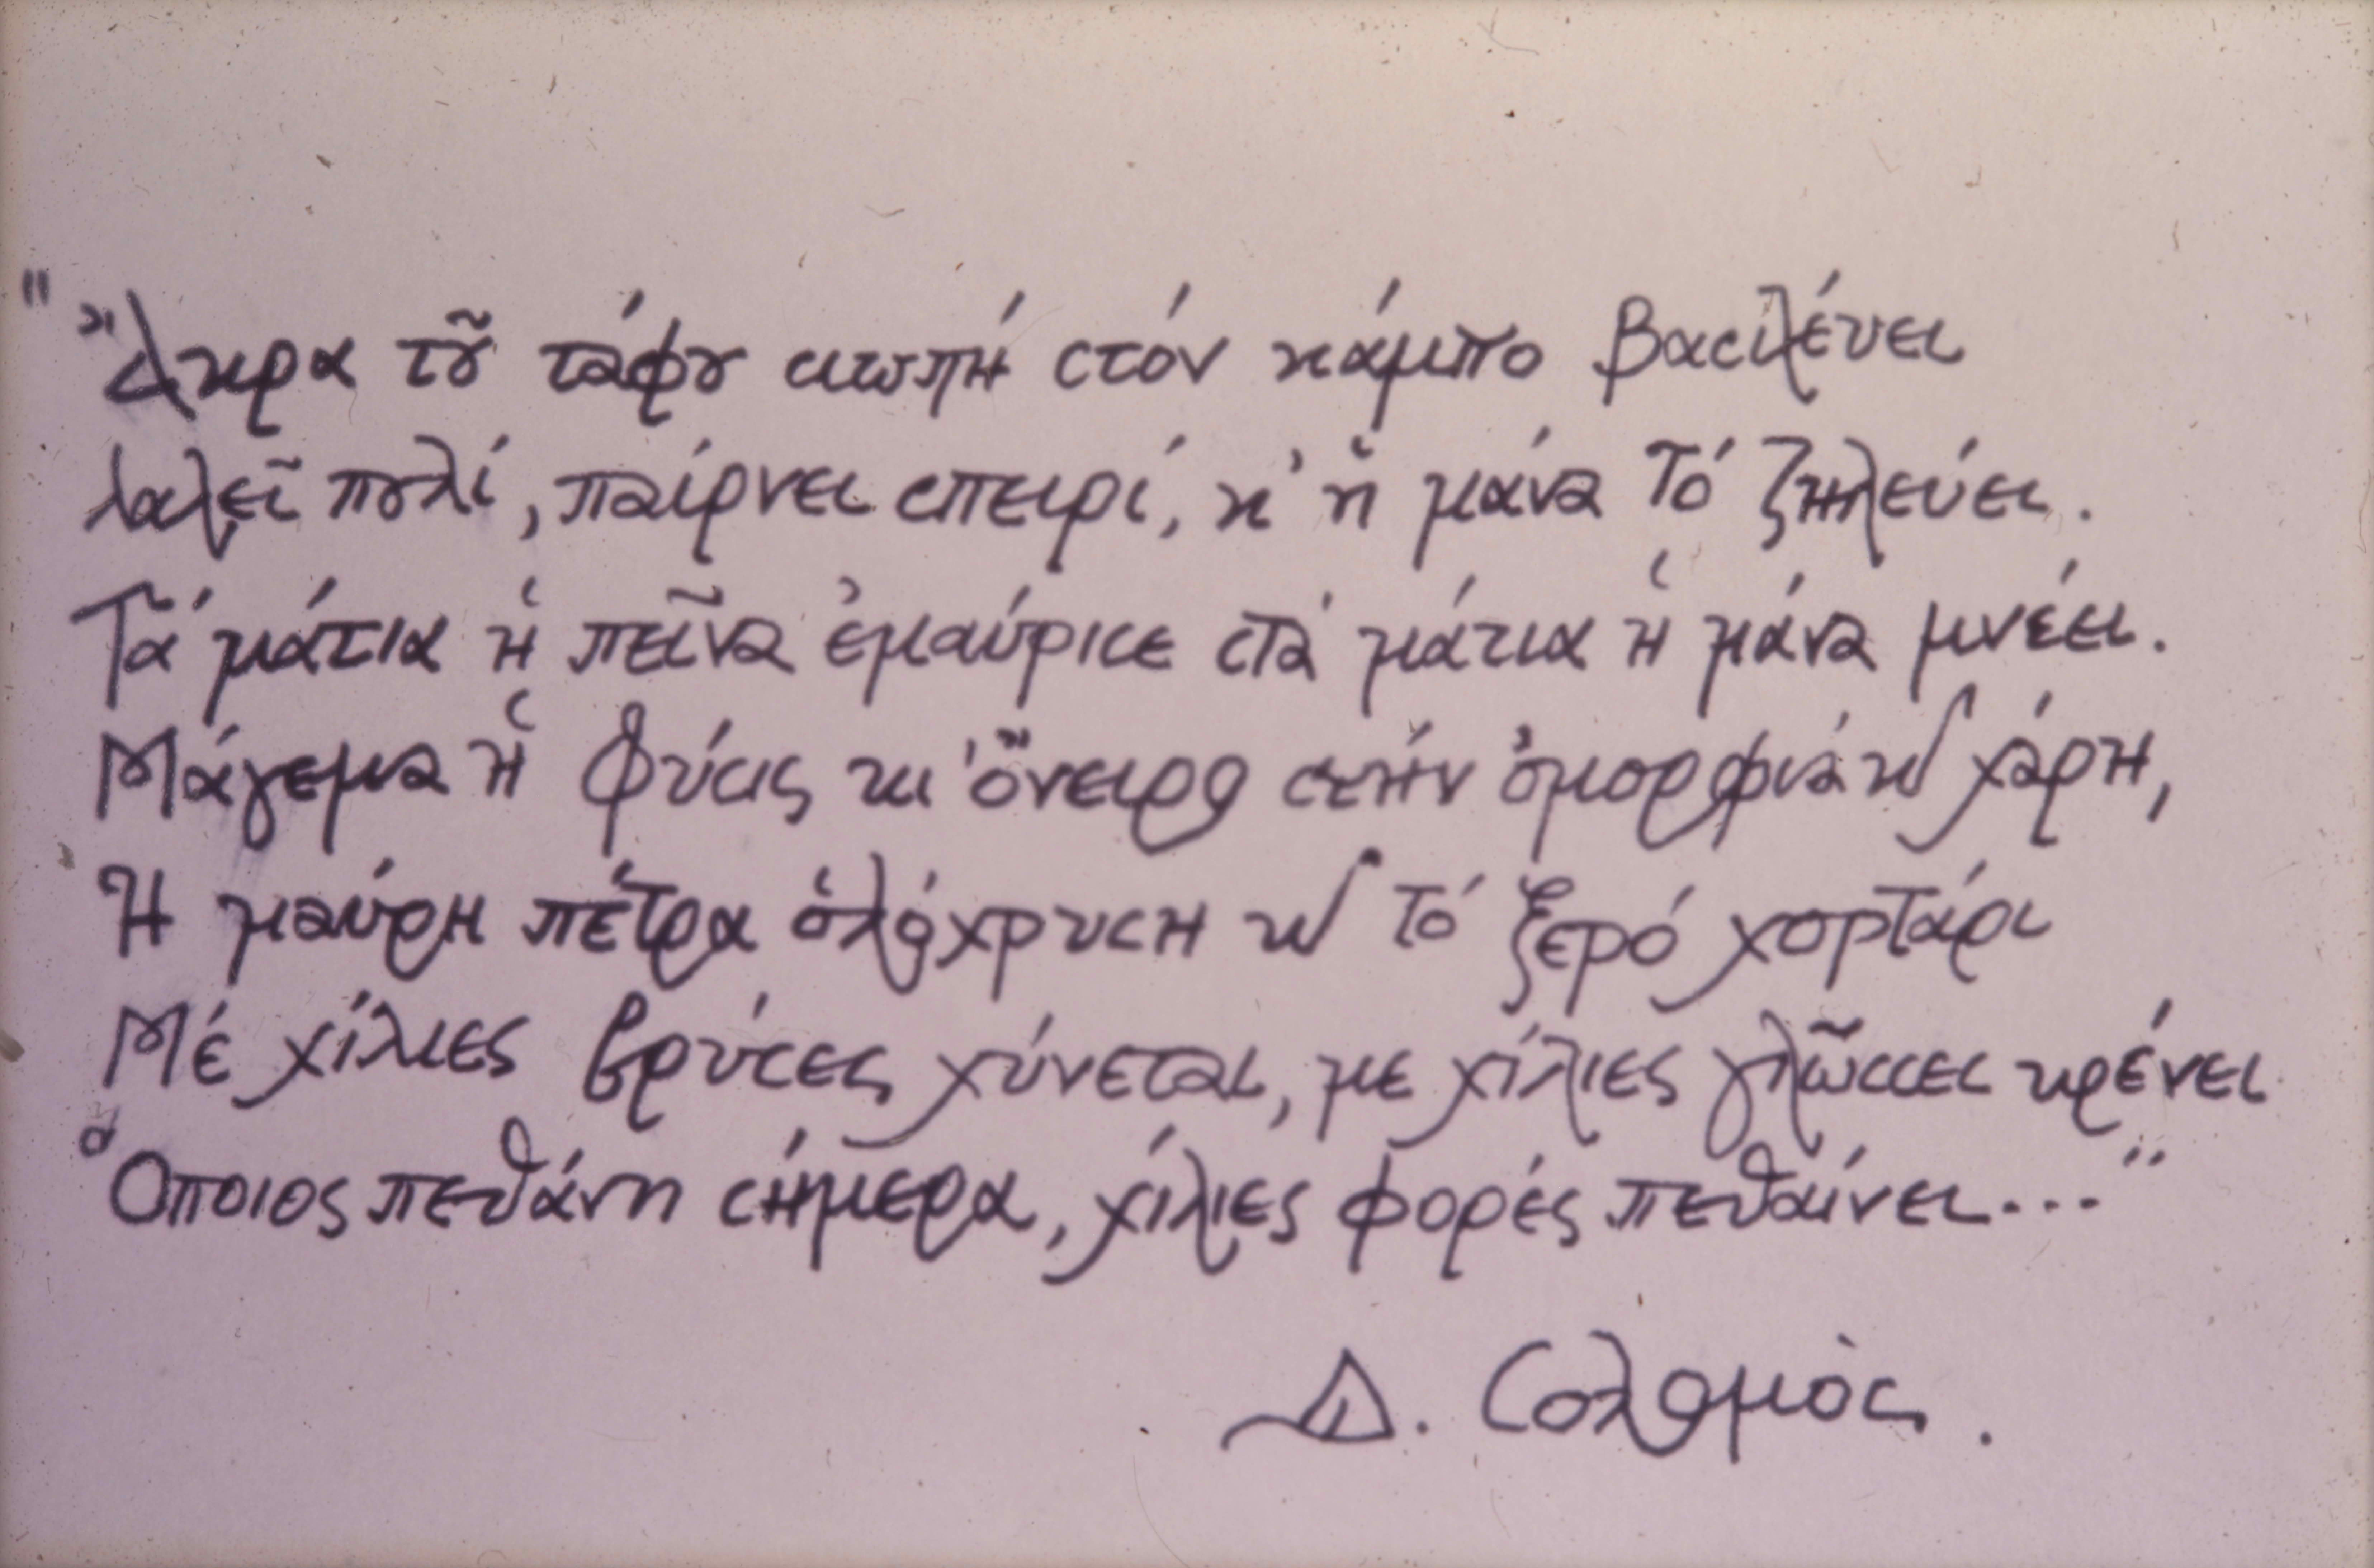 "Ἄκρα τοῦ τάφου σιωπή στόν κάμπο βασιλέυει
λαλεῖ πουλί, παίρνει σπειρί, κ' ἡ μάνα τό ζηλεύει.
Τά μάτια ἡ πεῖνα ἐμαύρισε στά μάτια ἡ μάνα μνέει.
Μάγεμα ἡ Φύσις κι ὄνειρο στήν ὀμορφιά καί χάρη,
Ἡ μαύρη πέτρα ὁλόχρυση καί τό ξερό χορτάρι
Μέ χίλιες βρύσες χύνεται, με χίλιες γλῶσσες κρένει
Ὅποιος πεθάνη σήμερα, χίλιες φορές πεθαίνει..."
Δ. Σολομὸς.